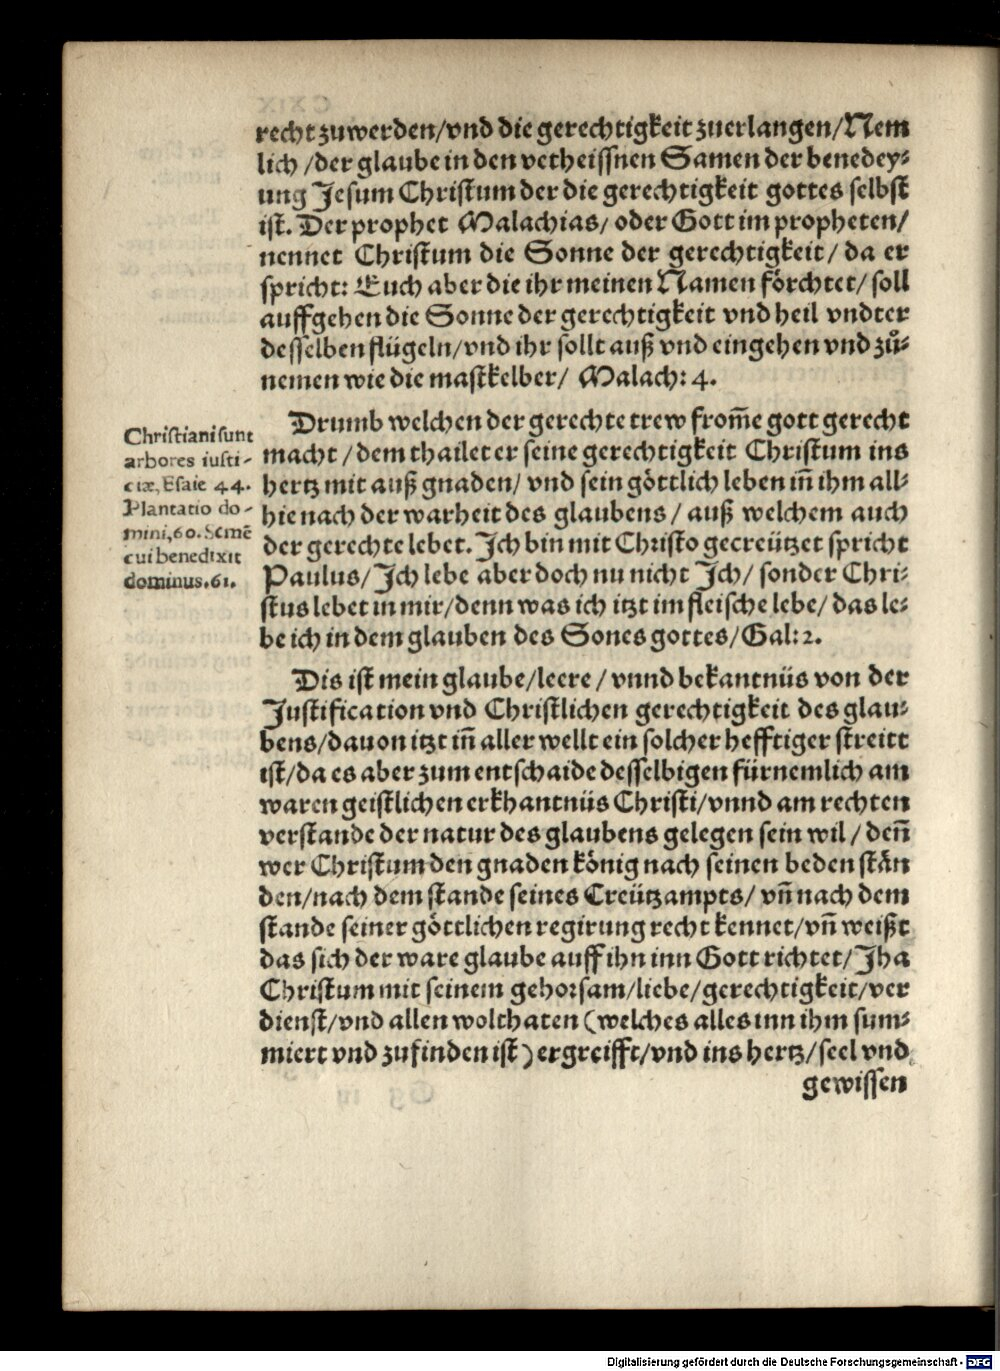 recht zuwerden/vnd die gerechtigkeit zuerlangen/Nem
lich /der glaube in den vetheissnen Samen der benedey⸗
ung Jesum Christum der die gerechtigkeit gottes selbst
ist. Der prophet Malachias/ oder Gott im propheten/
nennet Christum die Sonne der gerechtigkeit/ da er
spricht: Euch aber die ihr meinen Namen förchtet/ soll
auffgehen die Sonne der gerechtigkeit vnd heil vndter
desselben flügeln/vnd ihr sollt auß vnd eingehen vnd zů⸗
nemen wie die mastkelber/ Malach: 4.
Drumb welchen der gerechte trew from̄e gott gerecht
macht /dem thailet er seine gerechtigkeit Christum ins
hertz mit auß gnaden/ vnd sein göttlich leben in̄ ihm all⸗
hie nach der warheit des glaubens / auß welchem auch
der gerechte lebet. Ich bin mit Christo gecreützet spricht
Paulus/ Ich lebe aber doch nu nicht Ich/ sonder Chri⸗
stus lebet in mir/denn was ich itzt im fleische lebe/ das le⸗
be ich in dem glauben des Sones gottes/Gal: 2.
Christiani sunt
arbores iusti-
ciæ, Esaie 44.
Plantatio do-
mini, 60. Semē
cui benedixit
dominus. 61.
Dis ist mein glaube/leere / vnnd bekantnüs von der
Justification vnd Christlichen gerechtigkeit des glau⸗
bens/dauon itzt in̄ aller wellt ein solcher hefftiger streitt
ist/da es aber zum entschaide desselbigen fürnemlich am
waren geistlichen erkhantnüs Christi/vnnd am rechten
verstande der natur des glaubens gelegen sein wil / den̄
wer Christum den gnaden könig nach seinen beden stän
den/nach dem stande seines Creützampts/ vn̄ nach dem
stande seiner göttlichen regirung recht kennet/vn̄ weißt
das sich der ware glaube auff ihn inn Gott richtet/ Jha
Christum mit seinem gehorsam/liebe/gerechtigkeit/ver
dienst/vnd allen wolthaten (welches alles inn ihm sum⸗
miert vnd zufinden ist) ergreifft/vnd ins hertz/seel vnd
gewissen
Digitalisierung gefördert durch die Deutsche Forschungsgemeinschaft - DFG